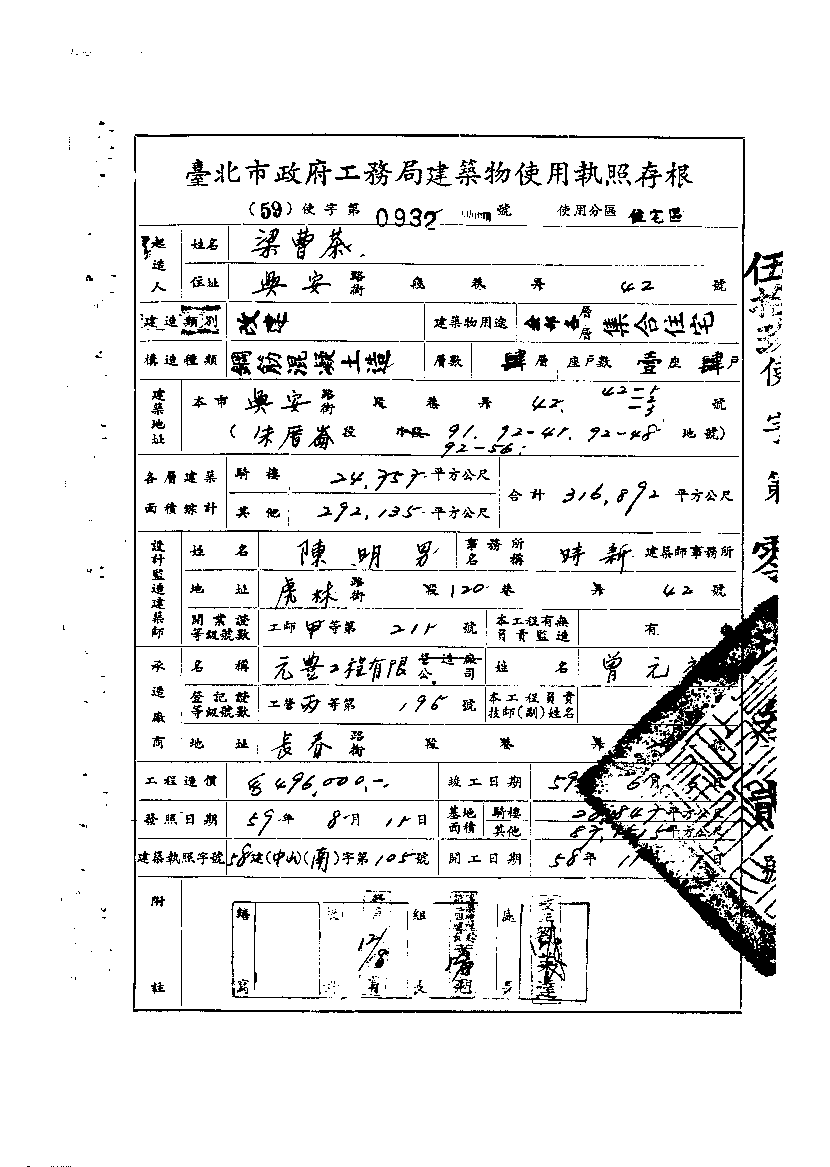 臺北市政府工務局建築物使用執照存根
(59)使字第 0932 號 使用分區 住宅區
起造人 姓名 梁曹
住址 興安 路街 段 巷 弄 42 號
建造類別 改建 建築物用途 層層 集合住宅
構造種類 鋼筋混凝土造 層數 肆層 座戶數 壹座 肆戶
建築地址 本市 興安 路街 段 巷 弄 42, 42-5 -2 -3 號
(朱厝崙段 小段 91, 92-41, 92-48 地號)
92-56,
各層建築面積綜計 騎樓 24,757 平方公尺
其他 292,135 平方公尺 合計 316,892 平方公尺
設計監造建築師 姓名 陳明男 事務所名稱 時新 建築師事務所
地址 虎林 路街 段 120 巷 弄 42 號
開業證等級號數 工師甲等第 215 號 本工程有無負責監造 有
承造廠商 名稱 元豐工程有限 營造廠公司 姓名 曾元
登記證等級號數 工營丙等第 195 號 本工程負責技師(副)姓名
地址 長春 路街 段 巷 弄 號
工程造價 496,000.- 竣工日期 59 6月 日
發照日期 59年 8月 15日 基地面積 騎樓 平方公尺
其他 平方公尺
建築執照字號 58建(中山)(南)字第105號 開工日期 58年 11 日
附註
繕寫 組長 處長
12/18
伍拾玖使字第零 號